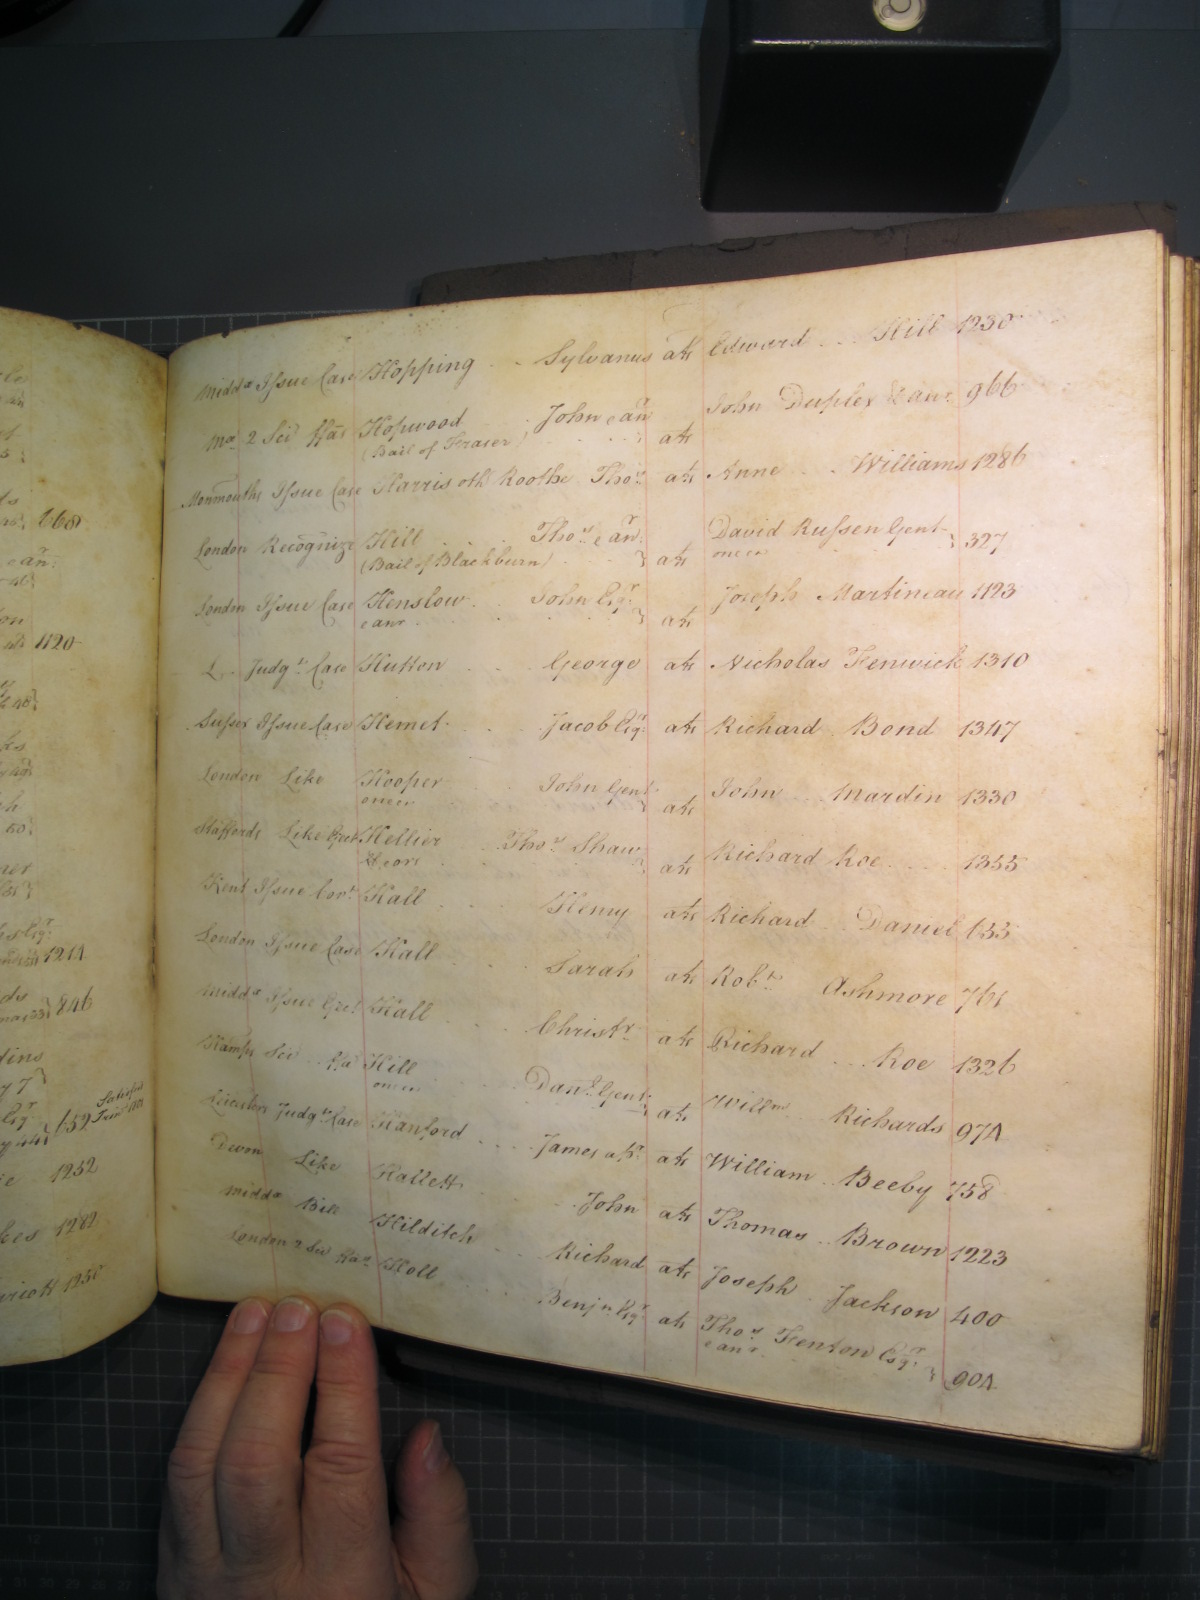 Midd.x Issue Case Hopping Sylvanus at Edward Hill 1230
Hopwood John & an.r at John Duplex & an.r 966
(Bail of Fraser)
Monmouths Issue Case Harris oth Roothe Tho.s at Anne Williams 1286
London Recognize Hill Tho.s & an.r at David Russen Gent 327
(Bail of Blackburn) one &c
London Issue Case Henslow John Esq.r at Joseph Martineau 1123
& an.r
L. Judg.t Case Hutton George at Nicholas Fenwick 1310
Sussex Issue Case Hemet Jacob Esq.r at Richard Bond 1347
London Like Hooper John Gent at John Mardin 1330
one &c
Staffords Like Hellier Tho.s Shaw at Richard Roe 1355
Kent Issue Cov.t Hall Henry at Richard Daniel 653
London Issue Case Hall Sarah at Rob.t Ashmore 761
Midd.x Issue Hall Christ.r at Richard Roe 1326
Hamps Sci fa Hill Dan.l Gent at Will.m Richards 974
one &c
Leicesters Judg.t Case Hanford James at William Beeby 758
Devon Like Hallett John at Thomas Brown 1223
Midd.x Bill Hilditch Richard at Joseph Jackson 400
London 2 Sci fa.s Holl Benj.n Esq.r at Tho.s Fenton Esq.r 904
& an.r
168
1120
1214
846
159 Satisfied
1252
1282
1250